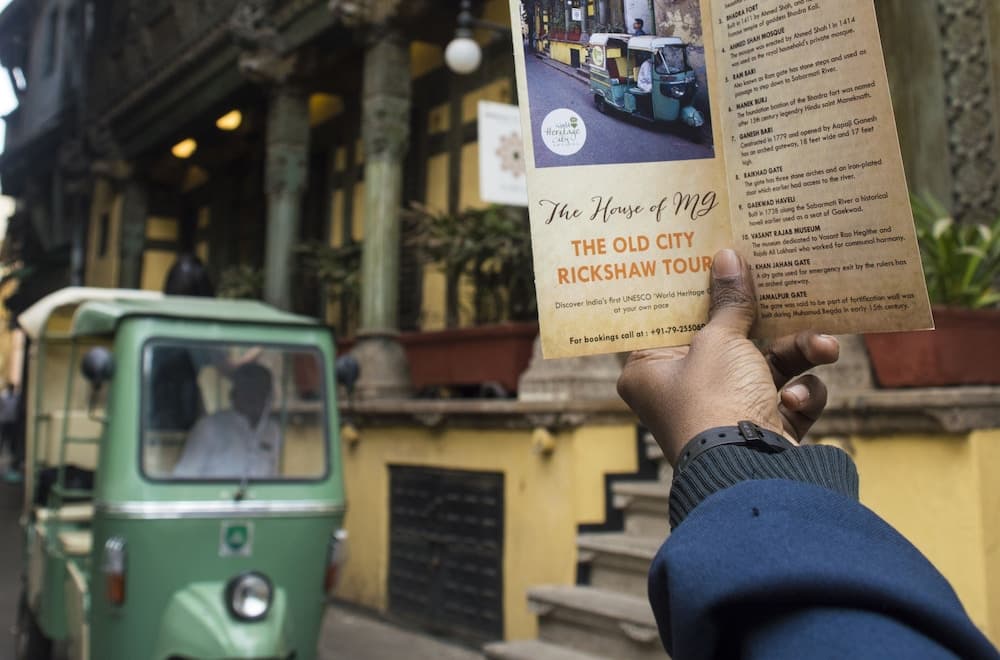 Heritage
City
The House of MG
THE OLD CITY
RICKSHAW TOUR
Discover India's first UNESCO 'World Heritage
at your own pace
For bookings call : +91-79-25506
3. BHADRA FORT
Built in 1411 by Ahmed Shah,
famous temple of goddess Bhadra Kali.
4. AHMED SHAH MOSQUE
The mosque was erected by Ahmed Shah I in 1414
was used as the royal household's private mosque.
5. RAM BARI
Also known as Ram gate has stone steps and used as
passage to step down to Sabarmati River.
6. MANEK BURJ
The foundation bastion of the Bhadra fort was named
after 15th century legendry Hindu saint Maneknath.
7. GANESH BARI
Constructed in 1779 and opened by Aapaji Ganesh
has an arched gateway, 18 feet wide and 17 feet
high.
8. RAIKHAD GATE
The gate has three stone arches and an iron-plated
door which earlier had access to the river.
9. GAEKWAD HAVELI
Built in 1738 along the Sabarmati River a historical
haveli earlier used as a seat of Gaekwad.
10. VASANT RAJAB MUSEUM
The museum dedicated to Vasant Rao Hegisthe and
Rajab Ali Lakhani who worked for communal harmony.
KHAN JAHAN GATE
A city gate used for emergency exit by the rulers has
an arched gateway.
JAMALPUR GATE
The gate was said to be part of fortification wall was
built during Muhamud Begda in early 15th century.